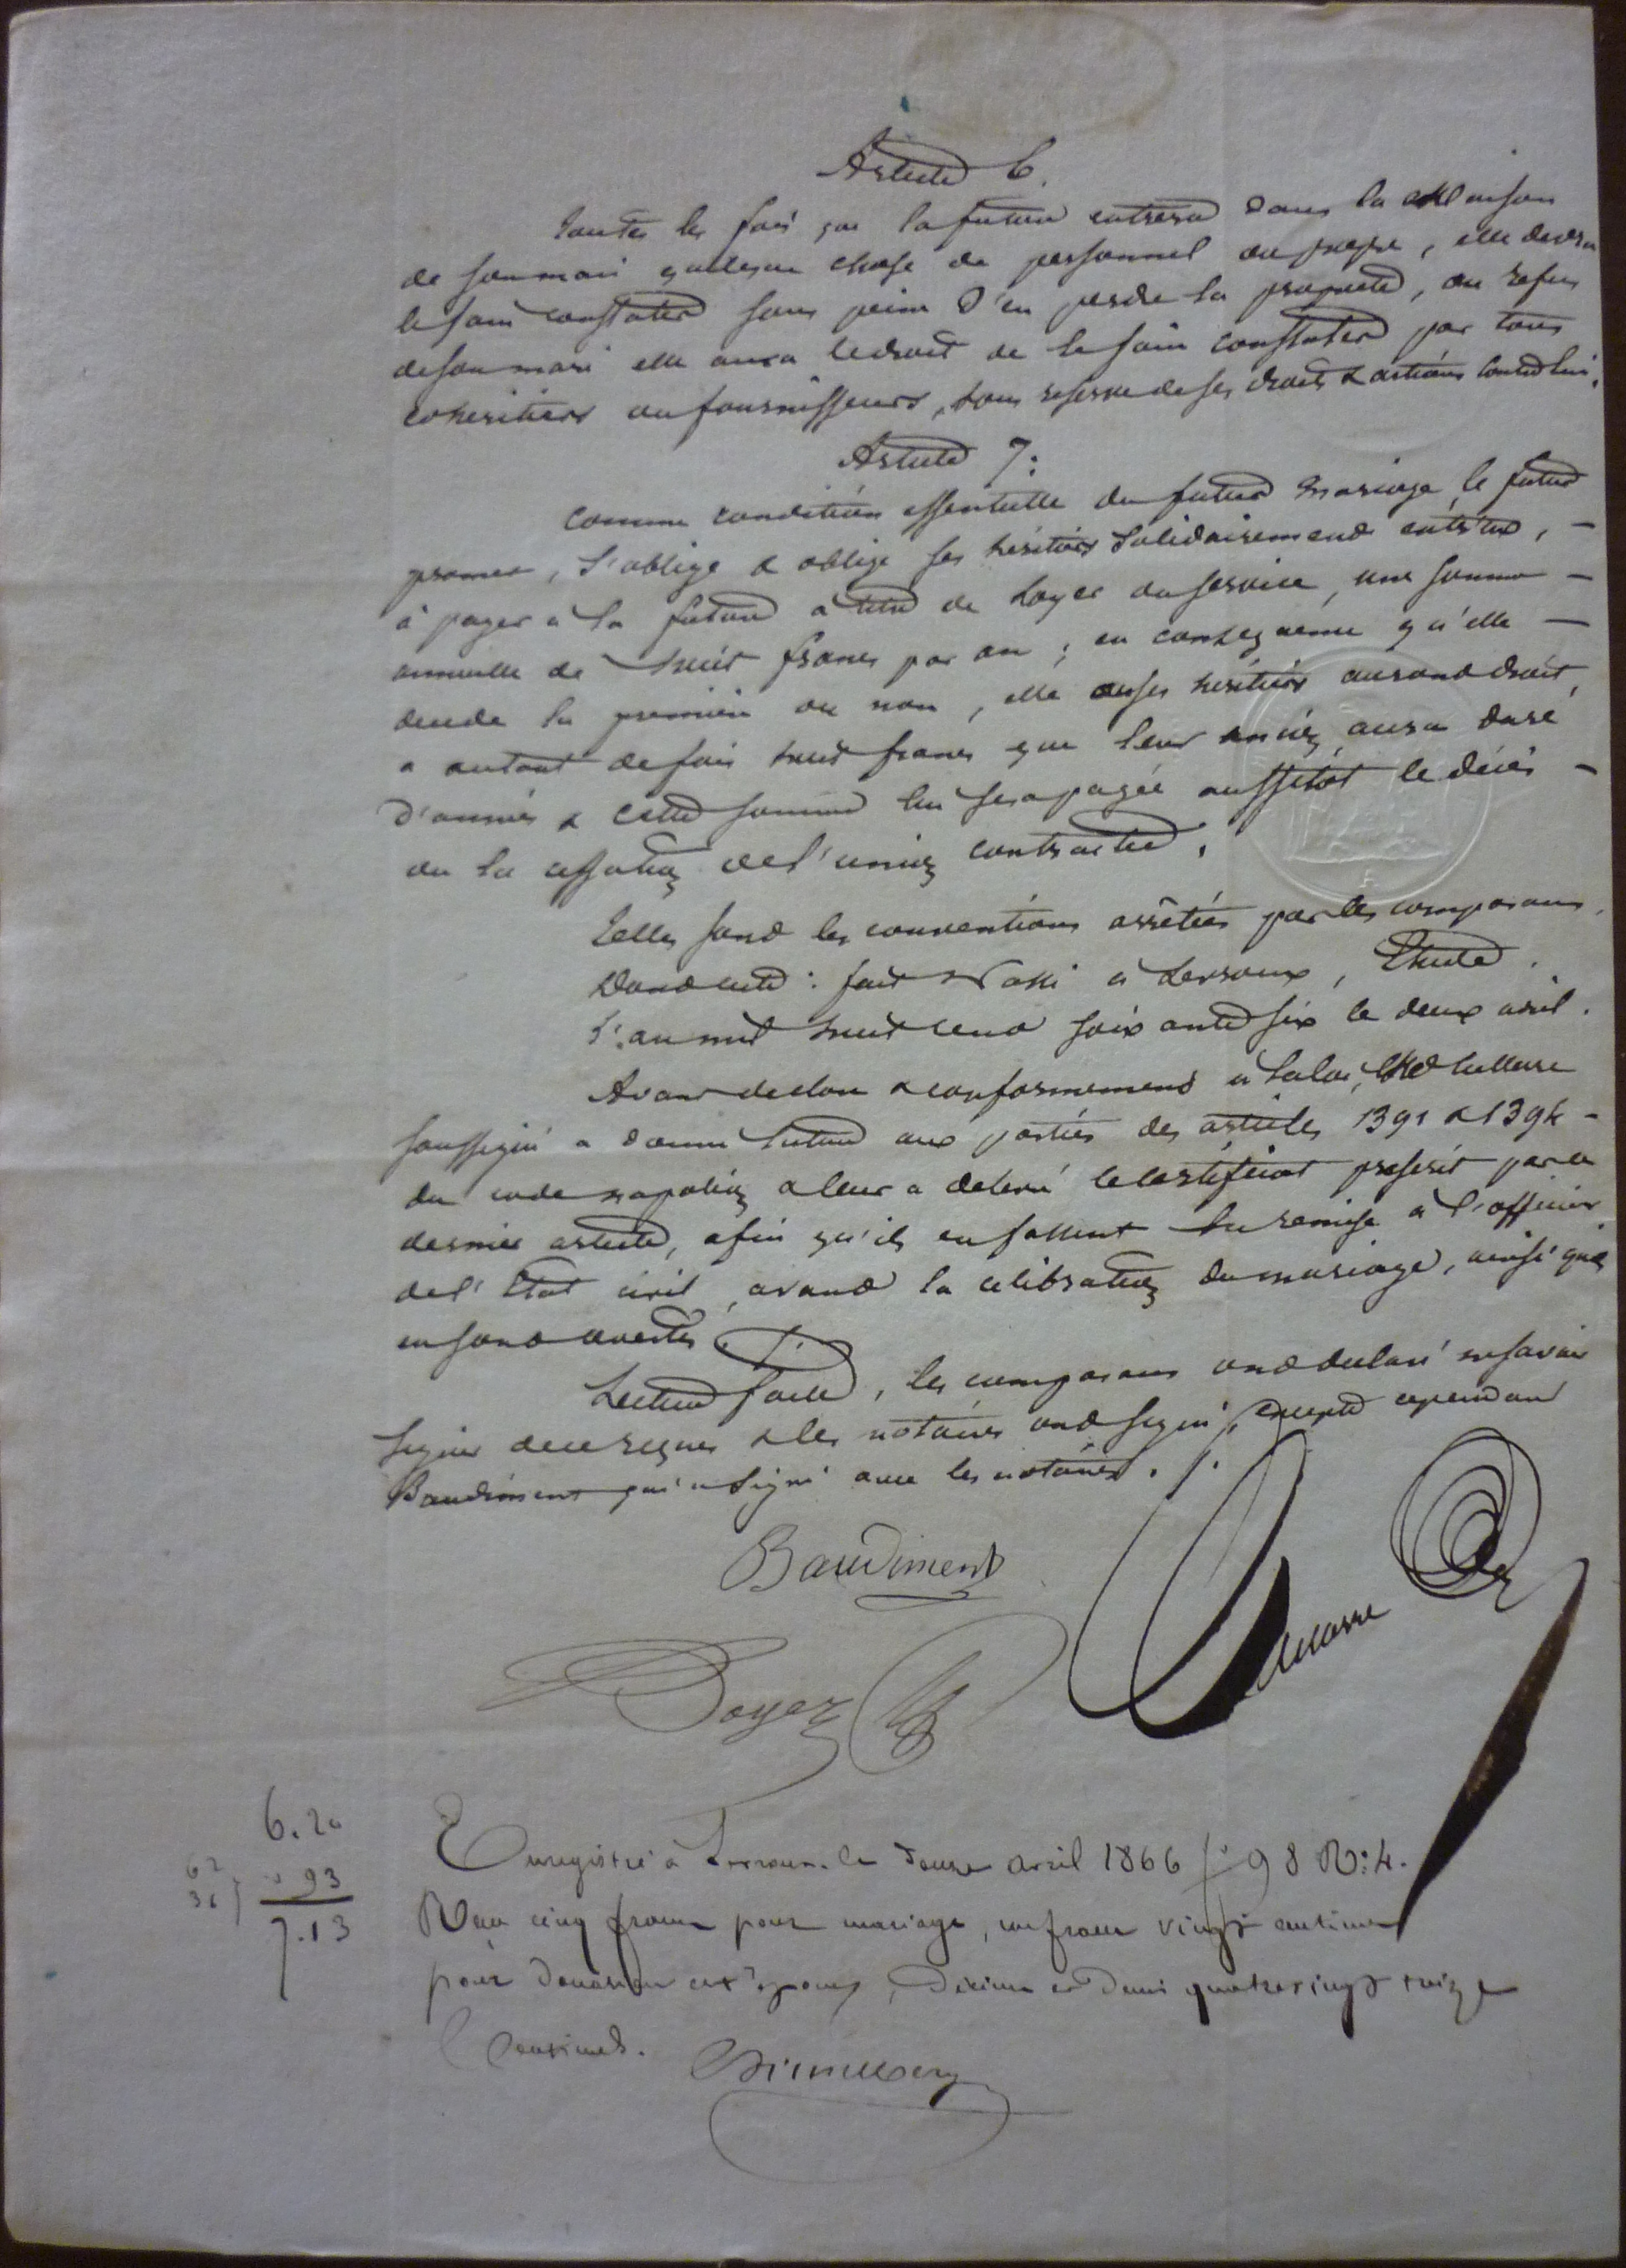 Article 6.
Toutes les fois que la future entrera dans la Maison
de son mari quelque chose de personnel ou propre, elle devra
le faire constater sous peine d'en perdre la propriété, au refus
de son mari elle aura le droit de le faire constater par tous
cohéritiers ou fournisseurs, sous reserve de ses droits & actions contre lui.
Article 7:
Comme condition essentielle du futur mariage le futur
promet, s'oblige & oblige ses héritiers solidairement entr'eux, -
à payer à la future à titre de loyer ou service, une somme -
annuelle de huit francs par an ; en conséquence qu'elle -
decede la première ou non, elle ou ses héritiers auront droit,
a autant de fois huit francs que leur union aura duré
d'années & cette somme lui sera payée aussitôt le décès -
ou la cessation de l'union contractée.
Telles sont les conventions arrêtées par les comparans.
Dont acte : fait & passé à Levroux, Etude.
L'an mil huit cent soixante six le deux avril.
Avant de clore & conformement à la loi, Me
soussigné a donné lecture aux parties des articles 1391 & 1394 -
du code napoléon & leur a delivré le certificat prescrit par ce
dernier article, afin qu'ils en fassent la remise à l'officier
de l'Etat civil, avant la célébration du mariage, ainsi qu'ils
en sont avertis ./.
Lecture faite, les comparans ont declaré ne savoir
signer de ce requis & les notaires ont signé, excepté cependant
Baudiment qui a signé avec les notaires ./.
Baudiment
Boyer
6.20
62
31 } 93
7.13
Enregistré à Levroux le douze avril 1866 f° 98 R: 4.
Reçu cinq francs pour mariage, un franc vingt centimes
pour donation entre époux, Décime et demi quatre vingt treize
Centimes.